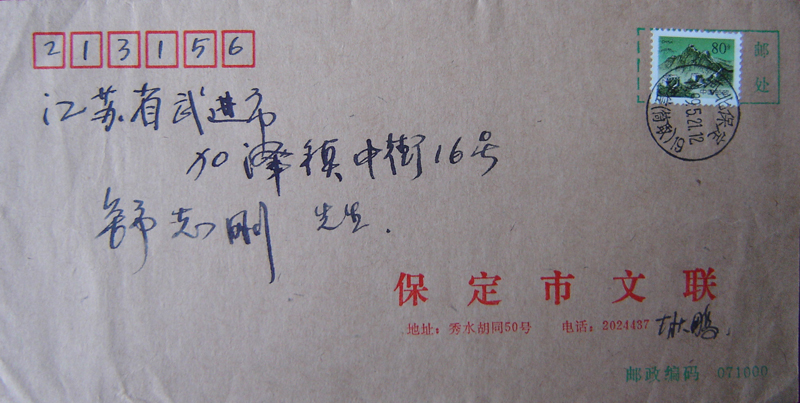 213156
80分
邮
处
江苏省武进市
加泽镇中街16号
舒志刚 先生.
保定
99.5.21.12
保定市文联
地址：秀水胡同50号 电话：2024437
邮政编码 071000